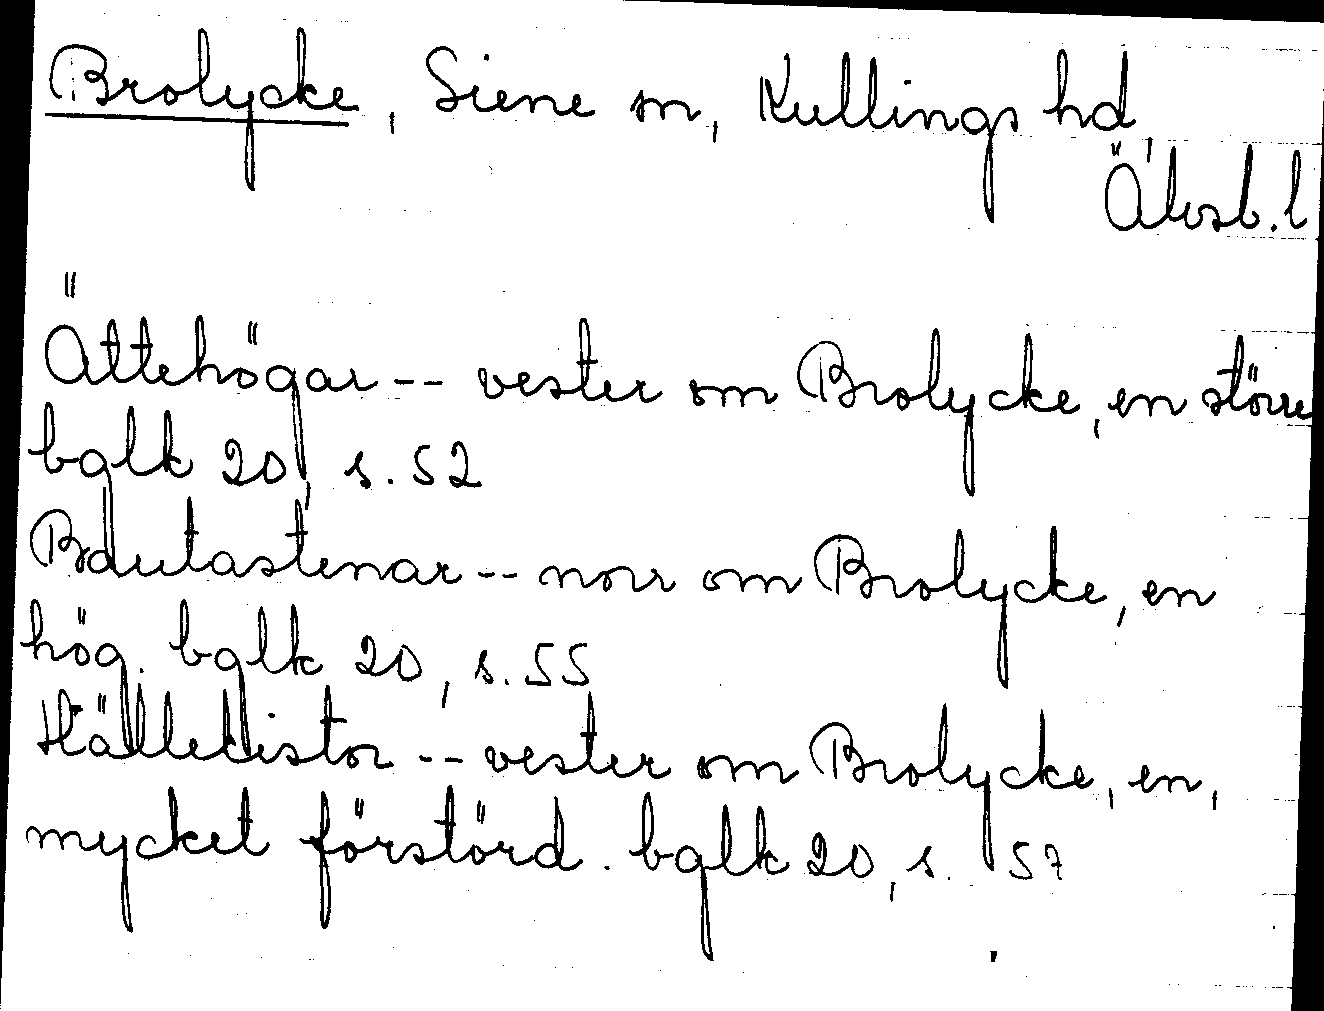 Brolycke, Siene sn, Kullings hd,
Älvsb. l
Ättehögar -- vester om Brolycke, en större
bglk 20, s. 52
Bautastenar -- norr om Brolycke, en
hög. bglk 20, s. 55
Hällekistor -- vester om Brolycke, en,
mycket förstörd. bglk 20, s. 57